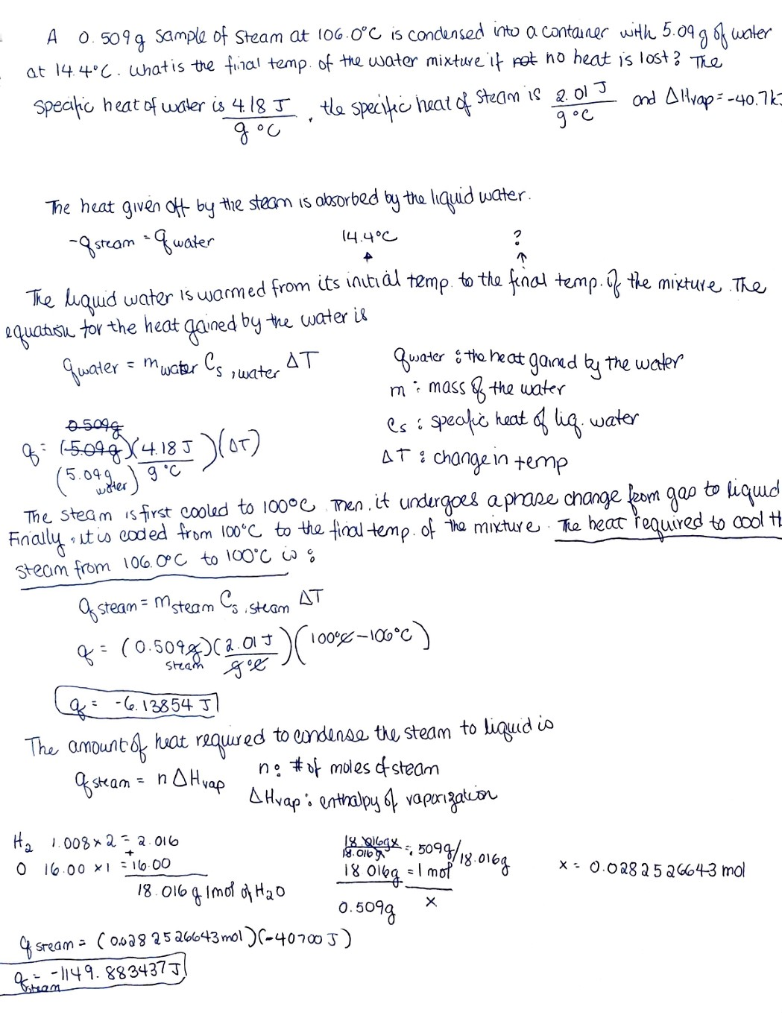 A 0.509g sample of steam at 106.0°C is condensed into a container with 5.09g of water
at 14.4°C. What is the final temp. of the water mixture if no heat is lost? The
specific heat of water is 4.18 J/g°C, the specific heat of steam is 2.01 J/g°C and ΔHvap = -40.7k
The heat given off by the steam is absorbed by the liquid water.
-qsteam = qwater 14.4°C ?
The liquid water is warmed from its initial temp. to the final temp. of the mixture. The
equation for the heat gained by the water is
qwater = mwater Cs, water ΔT
qwater : the heat gained by the water
m : mass of the water
Cs : specific heat of liq. water
ΔT : change in temp
0.509g
q = (5.09g)(4.18 J/g°C)(ΔT)
(5.09g water)
The steam is first cooled to 100°C. Then, it undergoes a phase change from gas to liquid
Finally, it is cooled from 100°C to the final temp. of the mixture. The heat required to cool th
steam from 106.0°C to 100°C is :
qsteam = msteam Cs, steam ΔT
q = (0.509g steam)(2.01 J/g°C)(100°C - 106°C)
q = -6.13854 J
The amount of heat required to condense the steam to liquid is
qsteam = nΔHvap
n : # of moles of steam
ΔHvap : enthalpy of vaporization
H2 1.008 x 2 = 2.016
+
O 16.00 x 1 = 16.00
18.016 g 1mol of H2O
18.016g x = .509g/18.016g
18.016g
18.016g = 1 mol
0.509g x
x = 0.0282526643 mol
qsteam = (0.0282526643 mol)(-40700 J)
qsteam = -1149.883437 J